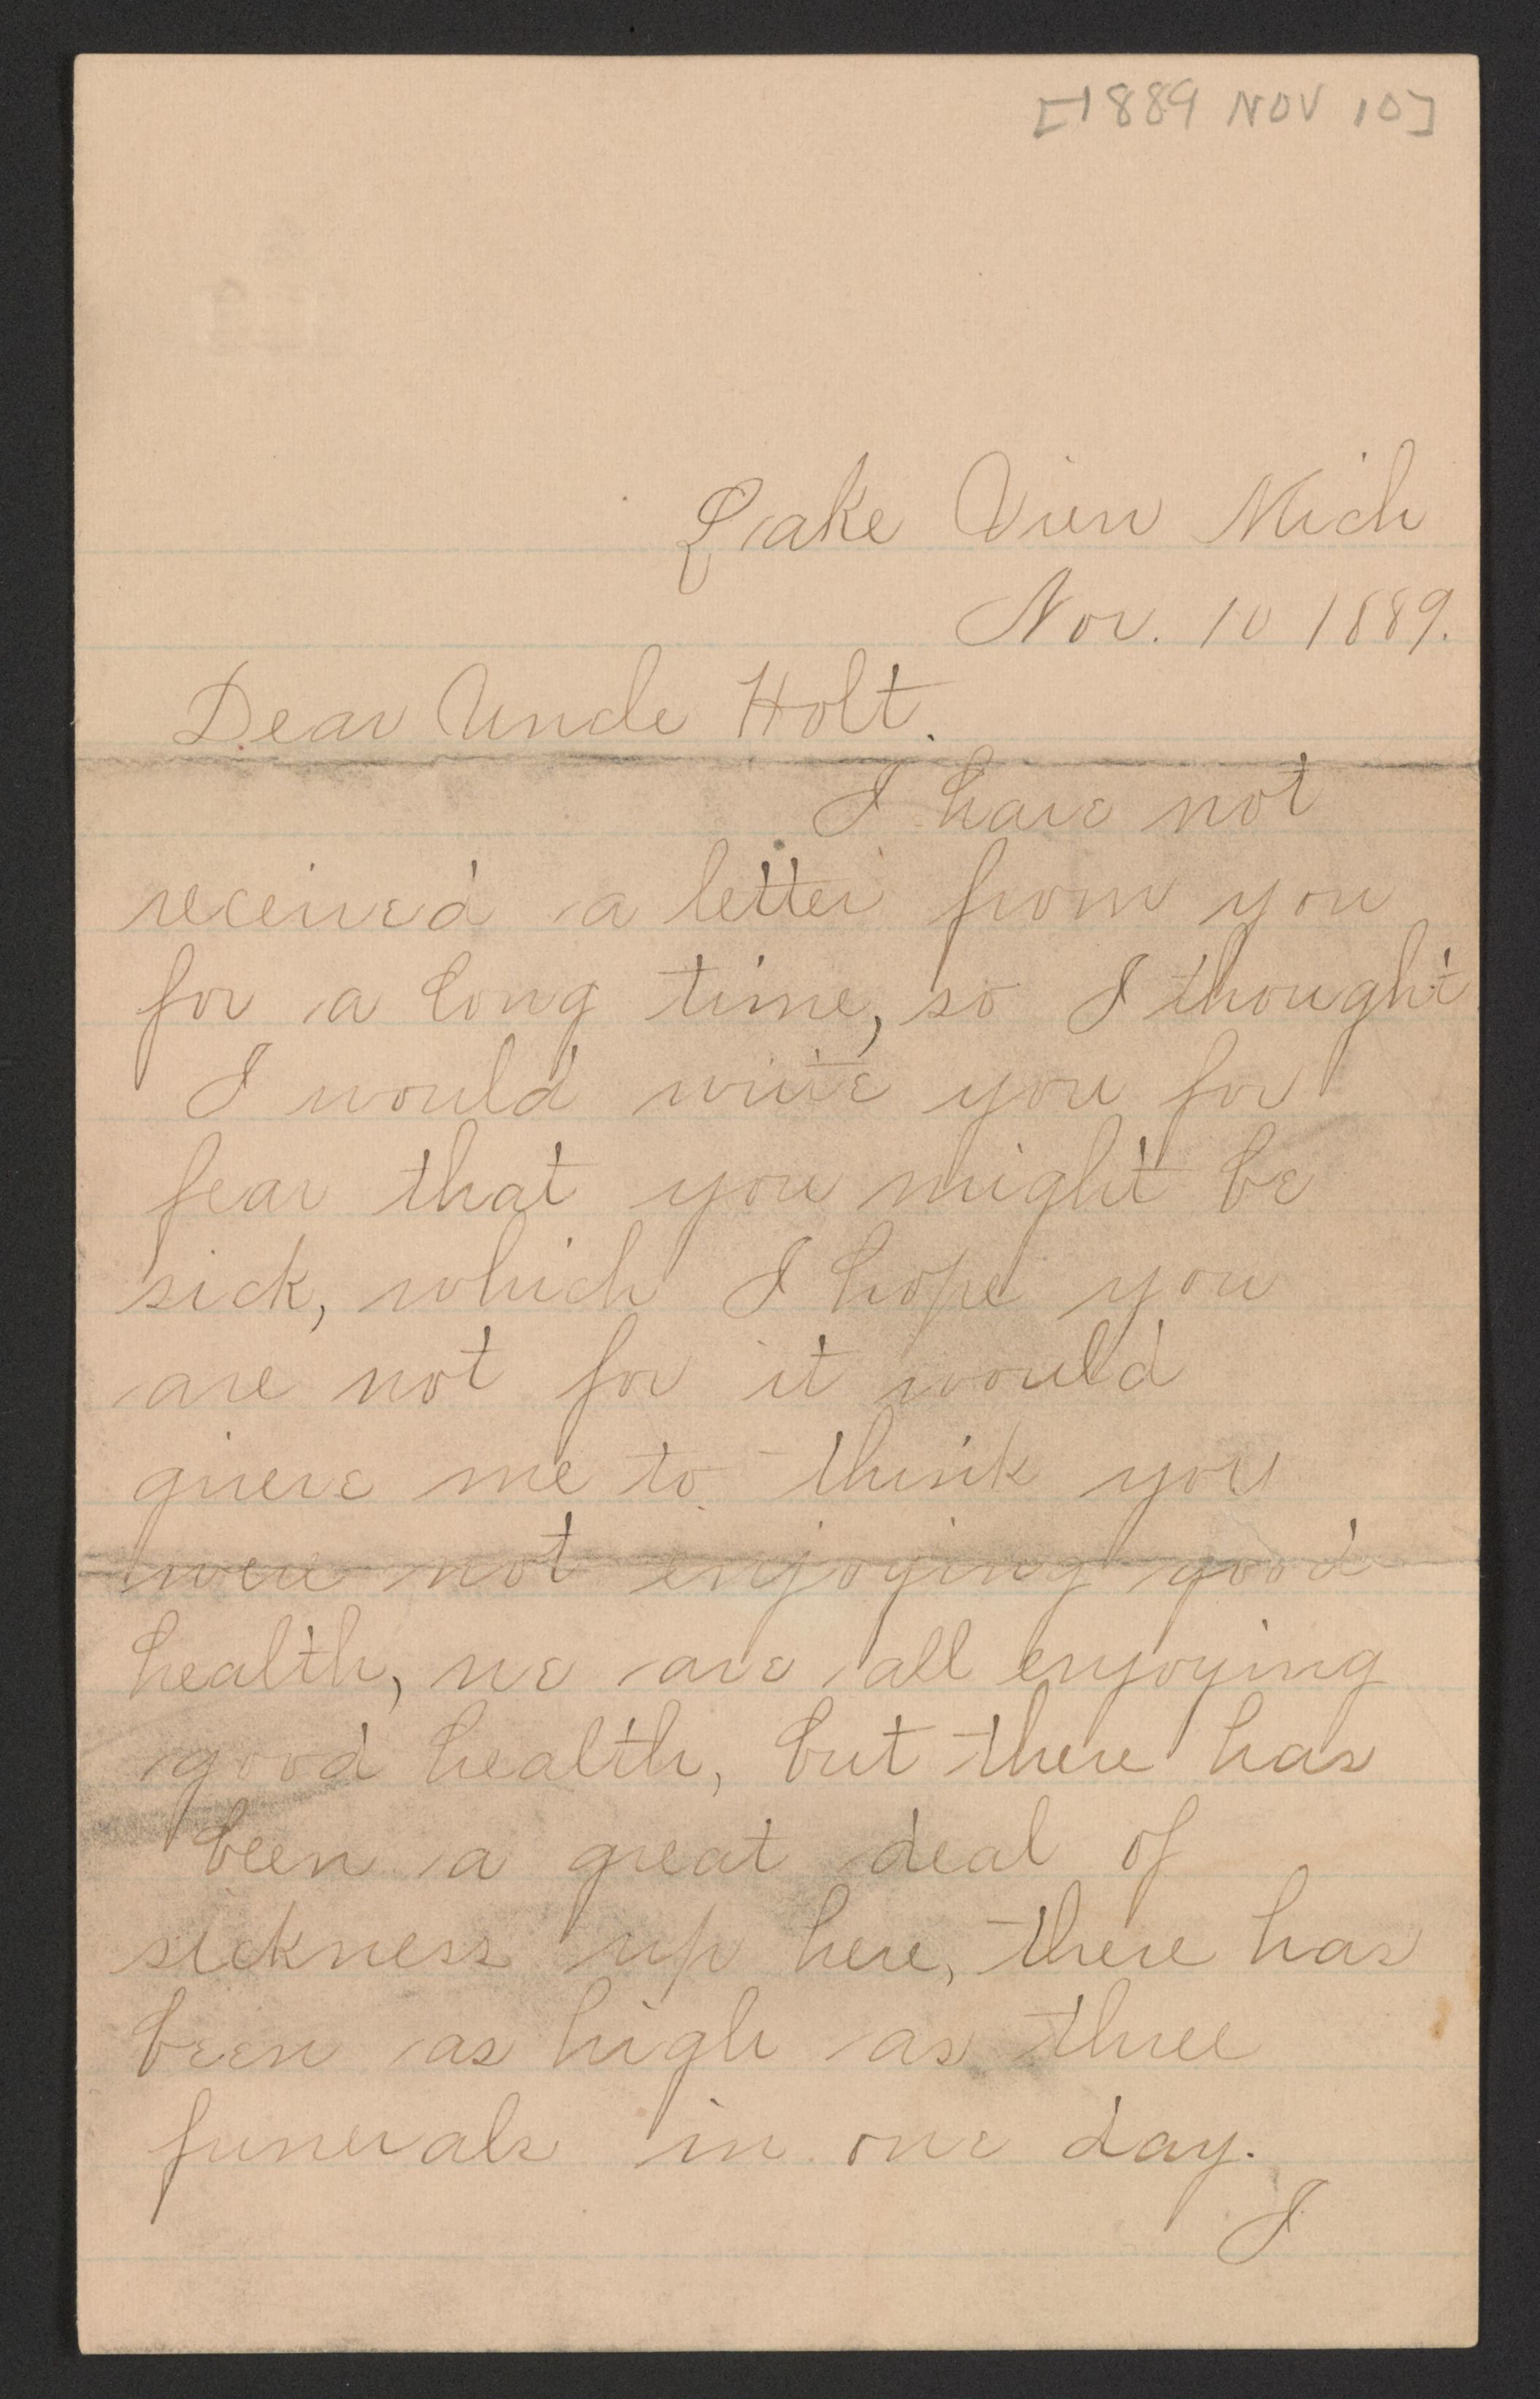 [1889 NOV 10]
Lake View Mich
Nov. 10 1889.
Dear Uncle Holt.
I have not
received a letter from you
for a long time, so I thought
I would write you for
fear that you might be
sick, which I hope you
are not for it would
grieve me to think you
were not enjoying good
health, we are all enjoying
good health, but there has
been a great deal of
sickness up here, there has
been as high as three
funerals in one day.
I